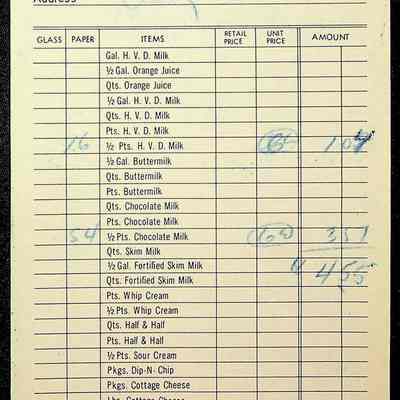 Address
GLASS PAPER ITEMS RETAIL PRICE UNIT PRICE AMOUNT
Gal. H. V. D. Milk
½ Gal. Orange Juice
Qts. Orange Juice
½ Gal. H. V. D. Milk
Qts. H. V. D. Milk
Pts. H. V. D. Milk
16 ½ Pts. H. V. D. Milk 104
½ Gal. Buttermilk
Qts. Buttermilk
Pts. Buttermilk
Qts. Chocolate Milk
Pts. Chocolate Milk
54 ½ Pts. Chocolate Milk 351
Qts. Skim Milk
½ Gal. Fortified Skim Milk 455
Qts. Fortified Skim Milk
Pts. Whip Cream
½ Pts. Whip Cream
Qts. Half & Half
Pts. Half & Half
½ Pts. Sour Cream
Pkgs. Dip-N-Chip
Pkgs. Cottage Cheese
Lbs. Cottage Cheese